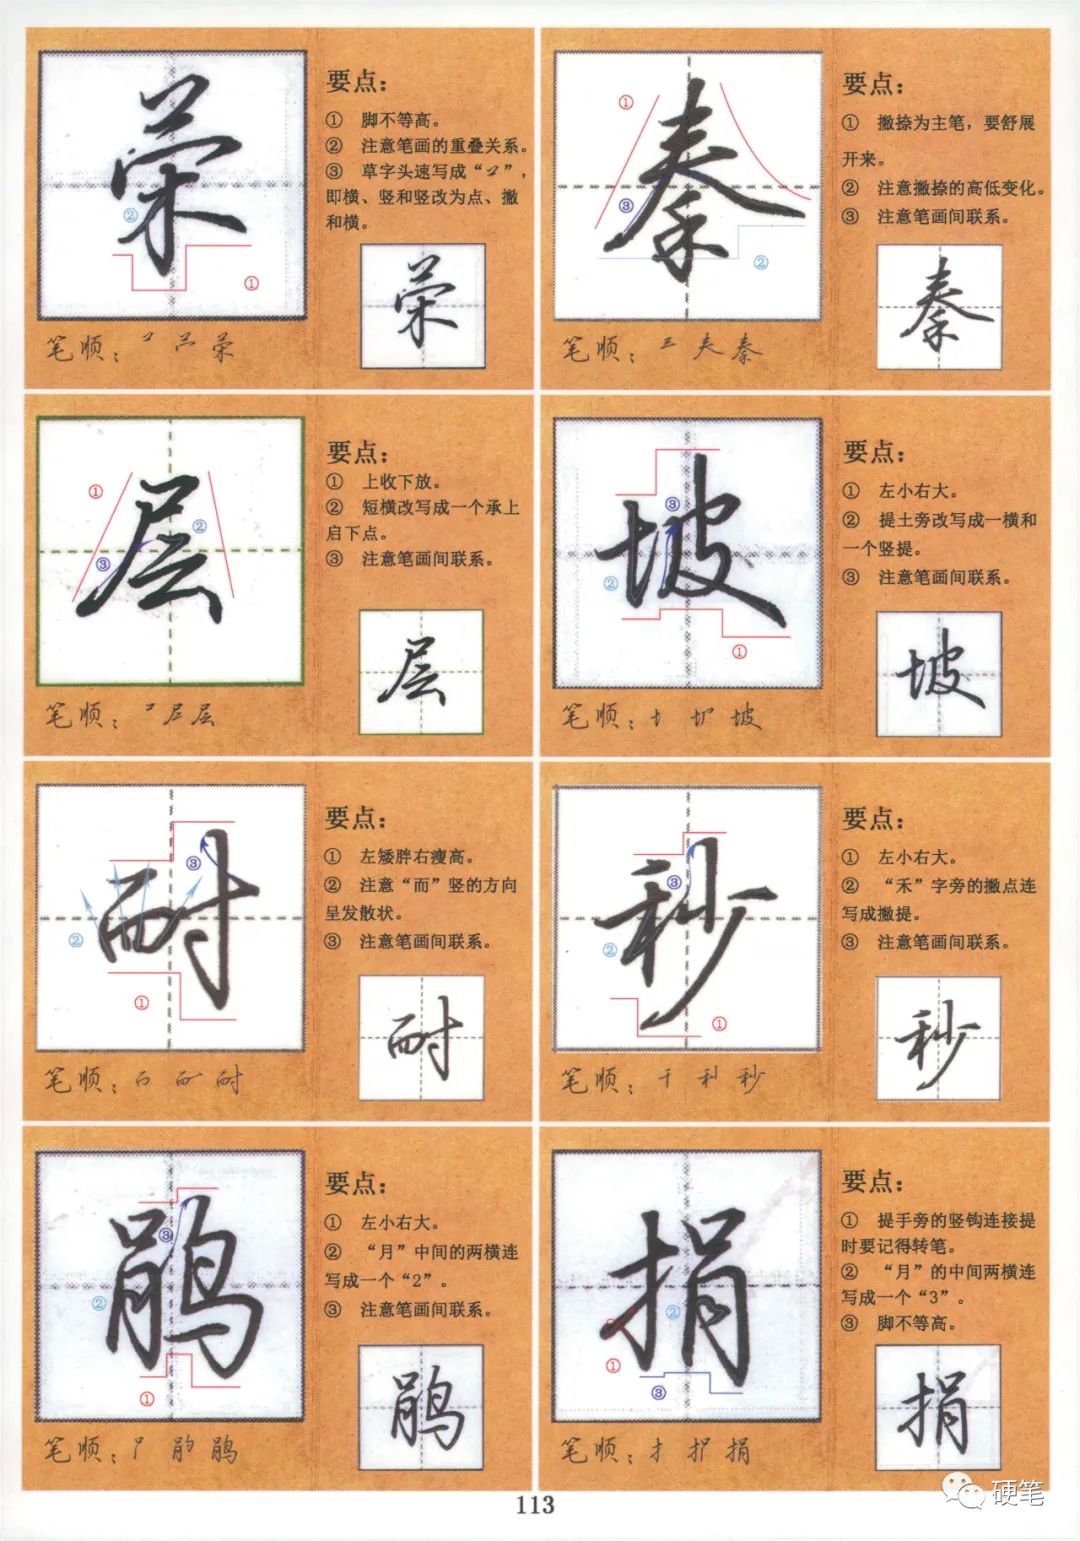 荣
要点：
① 脚不等高。
② 注意笔画的重叠关系。
③ 草字头速写成“⺀”，
即横、竖和竖改为点、撇
和横。
荣
笔顺： 荣
秦
要点：
① 撇捺为主笔，要舒展
开来。
② 注意撇捺的高低变化。
③ 注意笔画间联系。
秦
笔顺：三 𡗗 秦
层
要点：
① 上收下放。
② 短横改写成一个承上
启下点。
③ 注意笔画间联系。
层
笔顺： 层
坡
要点：
① 左小右大。
② 提土旁改写成一横和
一个竖提。
③ 注意笔画间联系。
坡
笔顺： 坡
耐
要点：
① 左矮胖右瘦高。
② 注意“而”竖的方向
呈发散状。
③ 注意笔画间联系。
耐
笔顺： 耐
秒
要点：
① 左小右大。
② “禾”字旁的撇点连
写成撇提。
③ 注意笔画间联系。
秒
笔顺：千 利 秒
鹃
要点：
① 左小右大。
② “月”中间的两横连
写成一个“2”。
③ 注意笔画间联系。
鹃
笔顺： 鹃
捐
要点：
① 提手旁的竖钩连接提
时要记得转笔。
② “月”的中间两横连
写成一个“3”。
③ 脚不等高。
捐
笔顺：扌 捐
113
硬笔